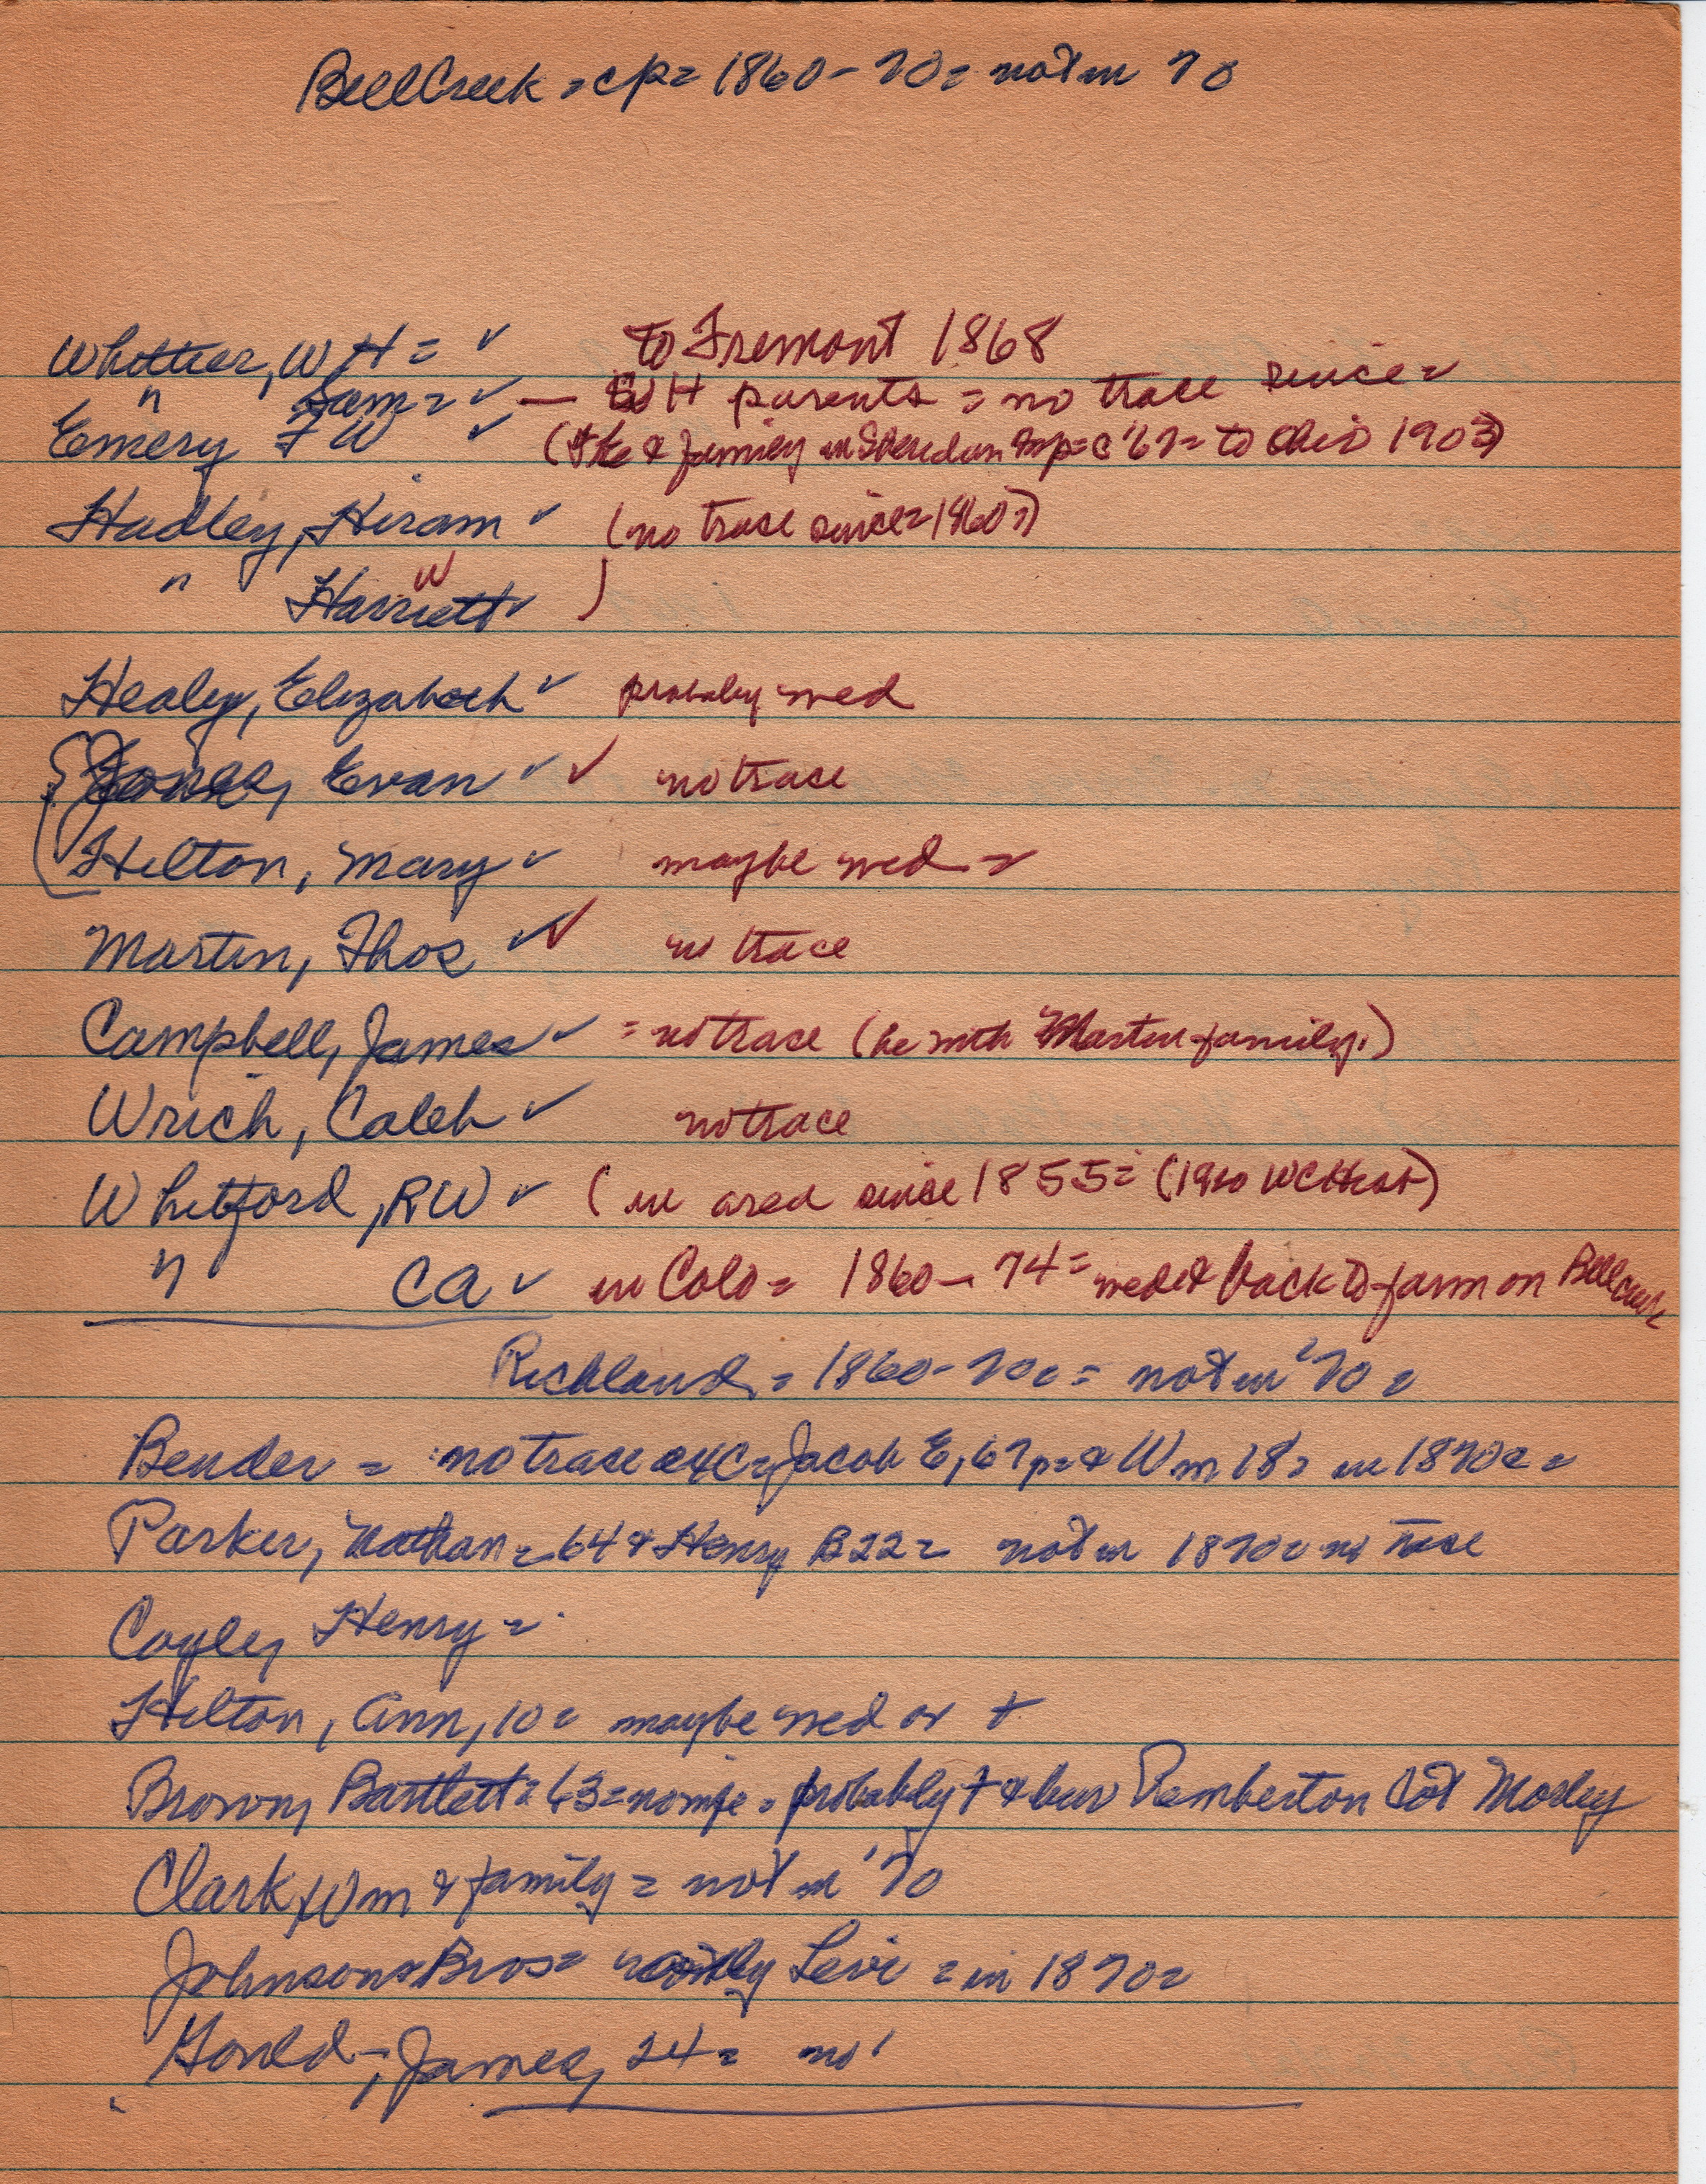 Bell Creek = cp = 1860-70 = not in 70
Whittier, W H = ✓ to Fremont 1868
" Sam = ✓ — WH parents = no trace since =
Emery F W ✓ (He & family in Sheridan = c '67 = to Ohio 1903)
Hadley, Hiram ✓ (no trace since = 1860 =)
" Harriett ✓ )
W
Healey, Elizabeth ✓ probably wed
Jones, Evan ✓ ✓ no trace
Hilton, Mary ✓ maybe wed =
Martin, Thos ✓ ✓ no trace
Campbell, James ✓ = no trace (he with Martin family.)
Wrich, Caleb ✓ no trace
Whitford, RW ✓ (in area since 1855 = (1920 WC Hist)
" CA ✓ in Colo = 1860 - 74 = wed & back to farm on Bell Creek
Richland = 1860-70 = not in '70 =
Bender = no trace exc = Jacob E, 67 & Wm 18 = in 1870 =
Parker, Nathan = 64 & Henry B 22 = not in 1870 = no trace
Coyle, Henry =
Hilton, Ann, 10 = maybe wed or +
Brown, Bartlett = 63 = no = probably + & bur Pemberton lot Morley
Clark, Wm & family = not in '70
Johnson Bros = Levi = in 1870 =
Gould -, James, 24 = no